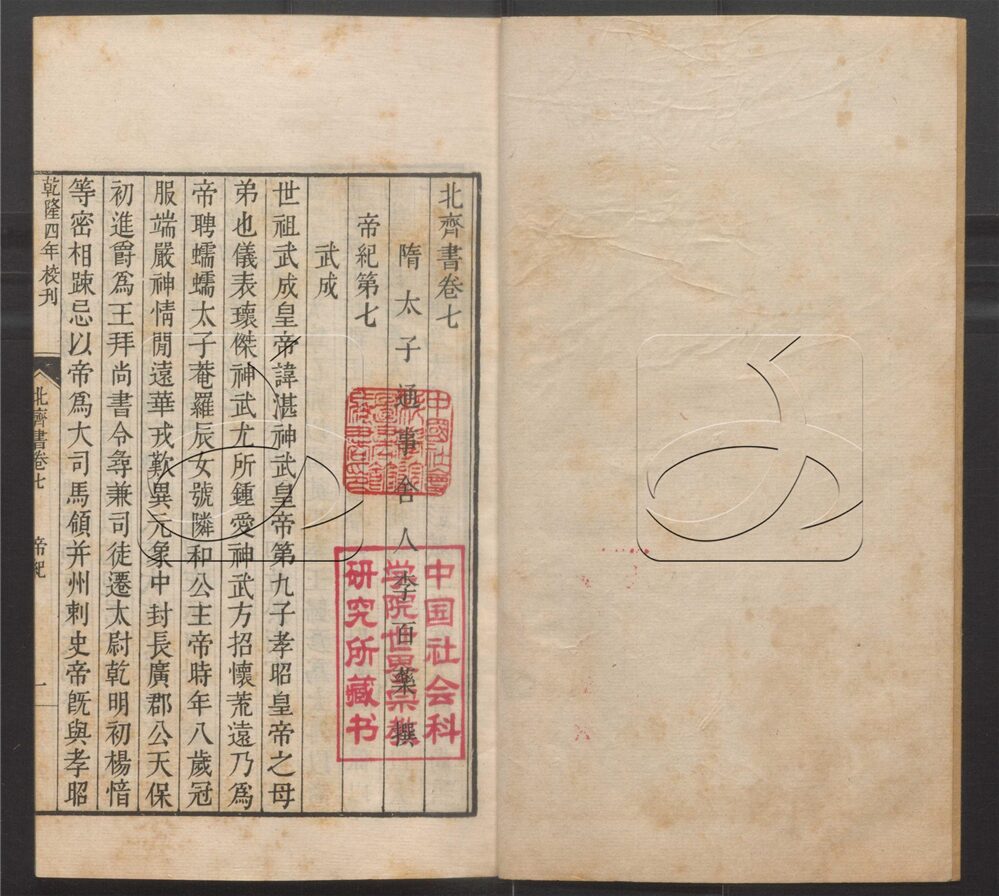 北齊書卷七
隋太子通事舍人李百藥撰
帝紀第七
武成
世祖武成皇帝諱湛神武皇帝第九子孝昭皇帝之母
弟也儀表瓌傑神武尤所鍾愛神武方招懷荒遠乃爲
帝聘蠕蠕太子菴羅辰女號隣和公主帝時年八歲冠
服端嚴神情閒遠華戎歎異元象中封長廣郡公天保
初進爵爲王拜尚書令尋兼司徒遷太尉乾明初楊愔
等密相疎忌以帝爲大司馬領并州刺史帝旣與孝昭
乾隆四年校刊
北齊書卷七
帝紀
一
中国社会科
学院世界宗教
研究所藏书